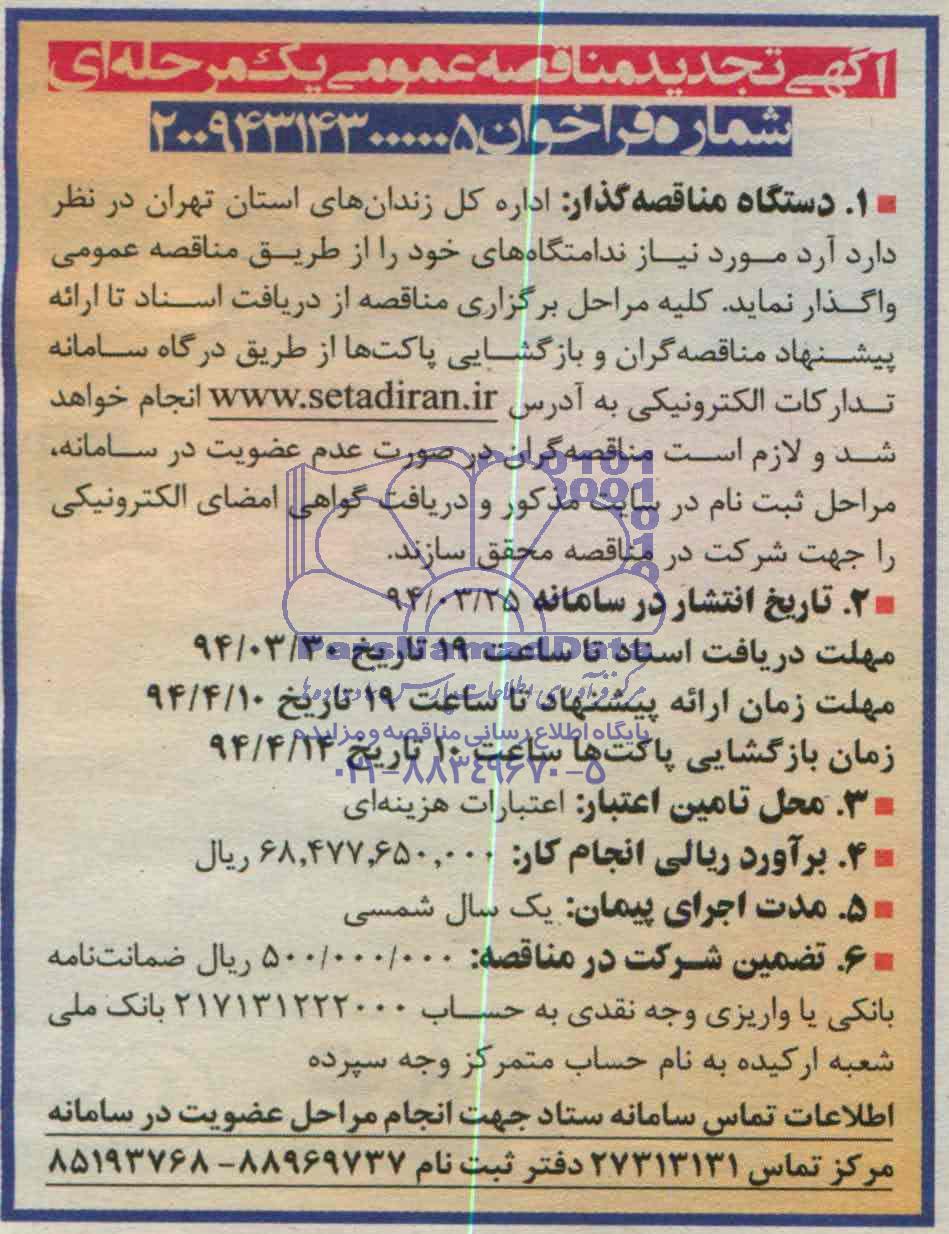 آگهی تجدید مناقصه عمومی یک مرحله‌ای
شماره فراخوان ۲۰۰۹۴۳۱۴۳۰۰۰۰۰۵
۱. دستگاه مناقصه‌گذار: اداره کل زندان‌های استان تهران در نظر
دارد آرد مورد نیاز ندامتگاه‌های خود را از طریق مناقصه عمومی
واگذار نماید. کلیه مراحل برگزاری مناقصه از دریافت اسناد تا ارائه
پیشنهاد مناقصه‌گران و بازگشایی پاکت‌ها از طریق درگاه سامانه
تدارکات الکترونیکی به آدرس www.setadiran.ir انجام خواهد
شد و لازم است مناقصه‌گران در صورت عدم عضویت در سامانه،
مراحل ثبت نام در سایت مذکور و دریافت گواهی امضای الکترونیکی
را جهت شرکت در مناقصه محقق سازند.
۲. تاریخ انتشار در سامانه ۹۴/۰۳/۲۵
مهلت دریافت اسناد تا ساعت ۱۹ تاریخ ۹۴/۰۳/۳۰
ParsNamadData
مهلت زمان ارائه پیشنهاد تا ساعت ۱۹ تاریخ ۹۴/۴/۱۰
پایگاه اطلاع رسانی مناقصه و مزایده
زمان بازگشایی پاکت‌ها ساعت ۱۰ تاریخ ۹۴/۴/۱۴
۰۲۱-۸۸۳۴۹۶۷۰-۵
۳. محل تامین اعتبار: اعتبارات هزینه‌ای
۴. برآورد ریالی انجام کار: ۶۸,۴۷۷,۶۵۰,۰۰۰ ریال
۵. مدت اجرای پیمان: یک سال شمسی
۶. تضمین شرکت در مناقصه: ۵۰۰/۰۰۰/۰۰۰ ریال ضمانت‌نامه
بانکی یا واریزی وجه نقدی به حساب ۲۱۷۱۳۱۲۲۲۰۰۰ بانک ملی
شعبه ارکیده به نام حساب متمرکز وجه سپرده
اطلاعات تماس سامانه ستاد جهت انجام مراحل عضویت در سامانه
مرکز تماس ۲۷۳۱۳۱۳۱ دفتر ثبت نام ۸۸۹۶۹۷۳۷ - ۸۵۱۹۳۷۶۸